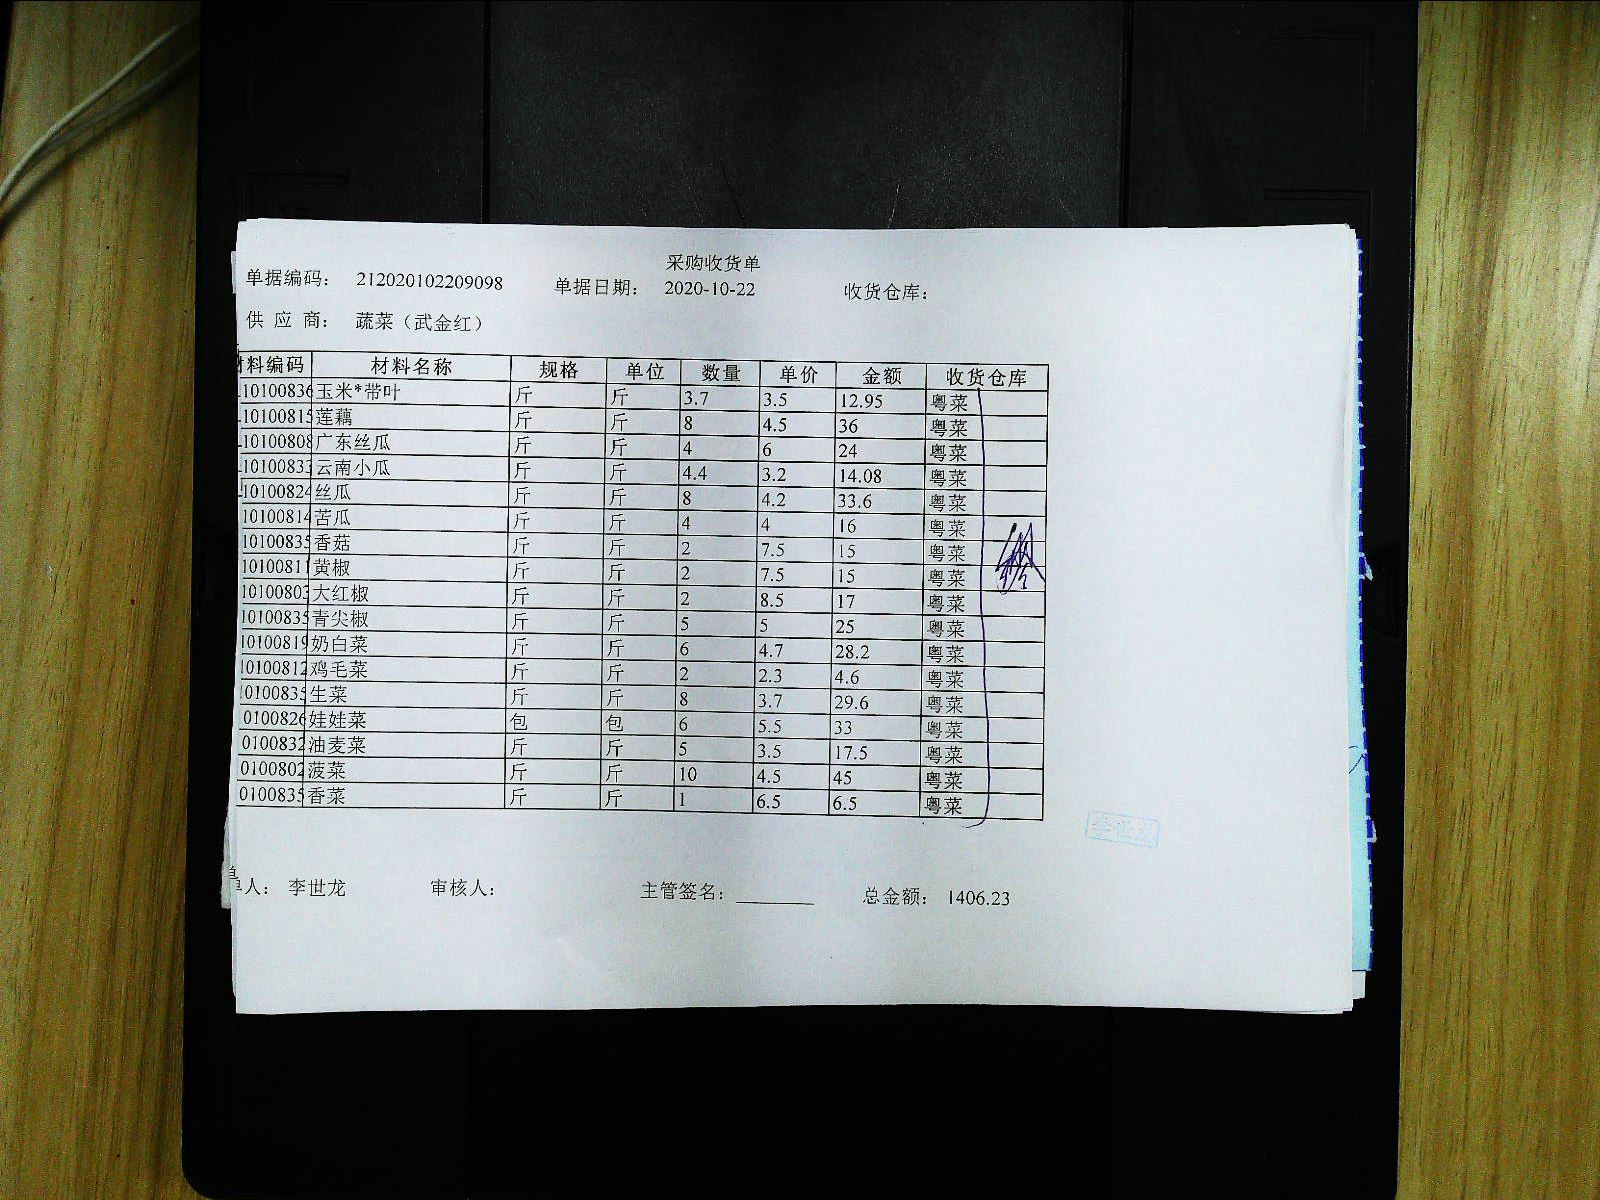 采购收货单
单据编码： 212020102209098 单据日期： 2020-10-22 收货仓库：
供 应 商： 蔬菜（武金红）
材料编码 材料名称 规格 单位 数量 单价 金额 收货仓库
10100836 玉米*带叶 斤 斤 3.7 3.5 12.95 粤菜
10100815 莲藕 斤 斤 8 4.5 36 粤菜
10100808 广东丝瓜 斤 斤 4 6 24 粤菜
10100833 云南小瓜 斤 斤 4.4 3.2 14.08 粤菜
10100824 丝瓜 斤 斤 8 4.2 33.6 粤菜
10100814 苦瓜 斤 斤 4 4 16 粤菜
10100835 香菇 斤 斤 2 7.5 15 粤菜
1010081 黄椒 斤 斤 2 7.5 15 粤菜
1010080 大红椒 斤 斤 2 8.5 17 粤菜
10100835 青尖椒 斤 斤 5 5 25 粤菜
10100819 奶白菜 斤 斤 6 4.7 28.2 粤菜
10100812 鸡毛菜 斤 斤 2 2.3 4.6 粤菜
0100835 生菜 斤 斤 8 3.7 29.6 粤菜
0100826 娃娃菜 包 包 6 5.5 33 粤菜
0100832 油麦菜 斤 斤 5 3.5 17.5 粤菜
0100802 菠菜 斤 斤 10 4.5 45 粤菜
0100835 香菜 斤 斤 1 6.5 6.5 粤菜
单人： 李世龙 审核人： 主管签名： 总金额： 1406.23